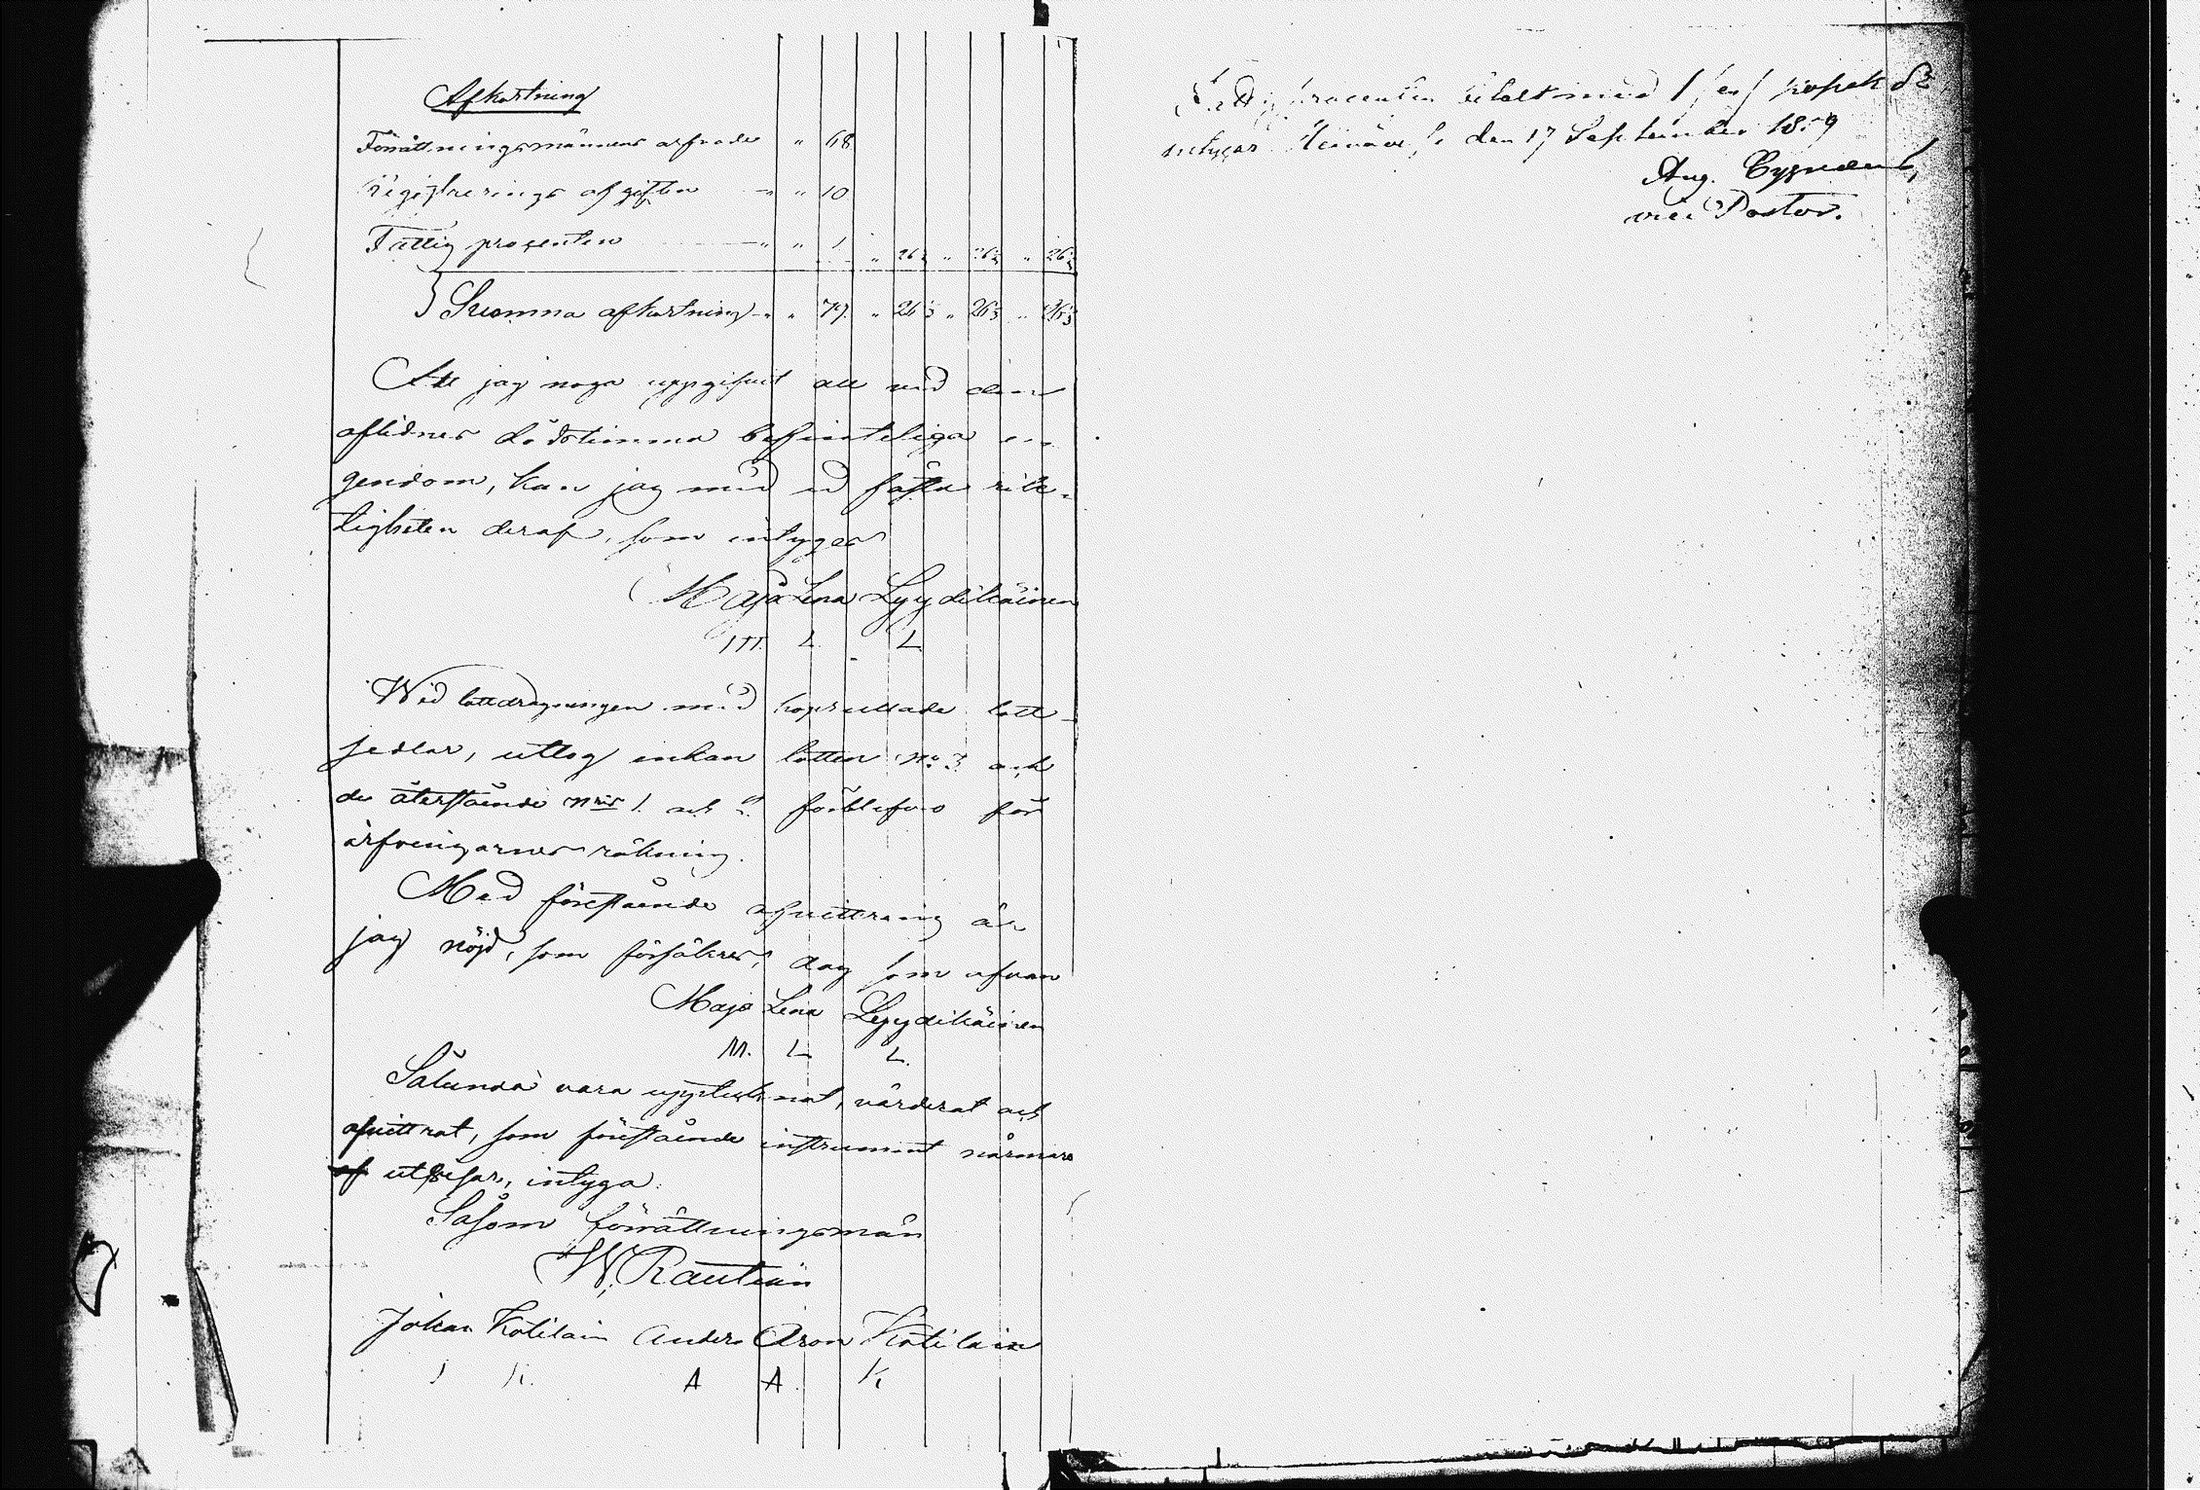 Afkortning
Förrättningsmännens arfvode " 68
Registrerings afgiften " " 10
Fattig procenten " " 1 " 26⅓ " 26⅓ " 26⅓
Summa afkortning " " 79. " 26⅓ " 26⅓ " 26⅓
Att jag noga uppgifvit all vid den
aflidnes dödstimma befinteliga e-
gendom, kan jag med ed fästa rik-
tigheten deraf, som intygar
Maja Lena Lyydikäinen
M. L. L.
Wid lottdragningen med hoprullade lott-
sedlar, uttog enkan lotten No 3 och
de återstående Nris 1. och 2. förblefvo för
arfvingarnes räkning.
Med förestående afvittring är
jag nöjd, som försäkras, dag som ofvan
Maja Lena Lyydikäinen
M. L L.
Sålunda vara upptecknat, värderat och
afvittrat, som förestående instrument närmare
af utvisar, intyga.
Såsom förrättningsmän
W. Rautiain
Johan Kotilain Anders Aron Kotilain
J K. A A. K
Fattig procenten betalt med 1 /en/ kopek Sr
intygar den 17 September 1859
Aug. Cygnæus,
vice Pastor.